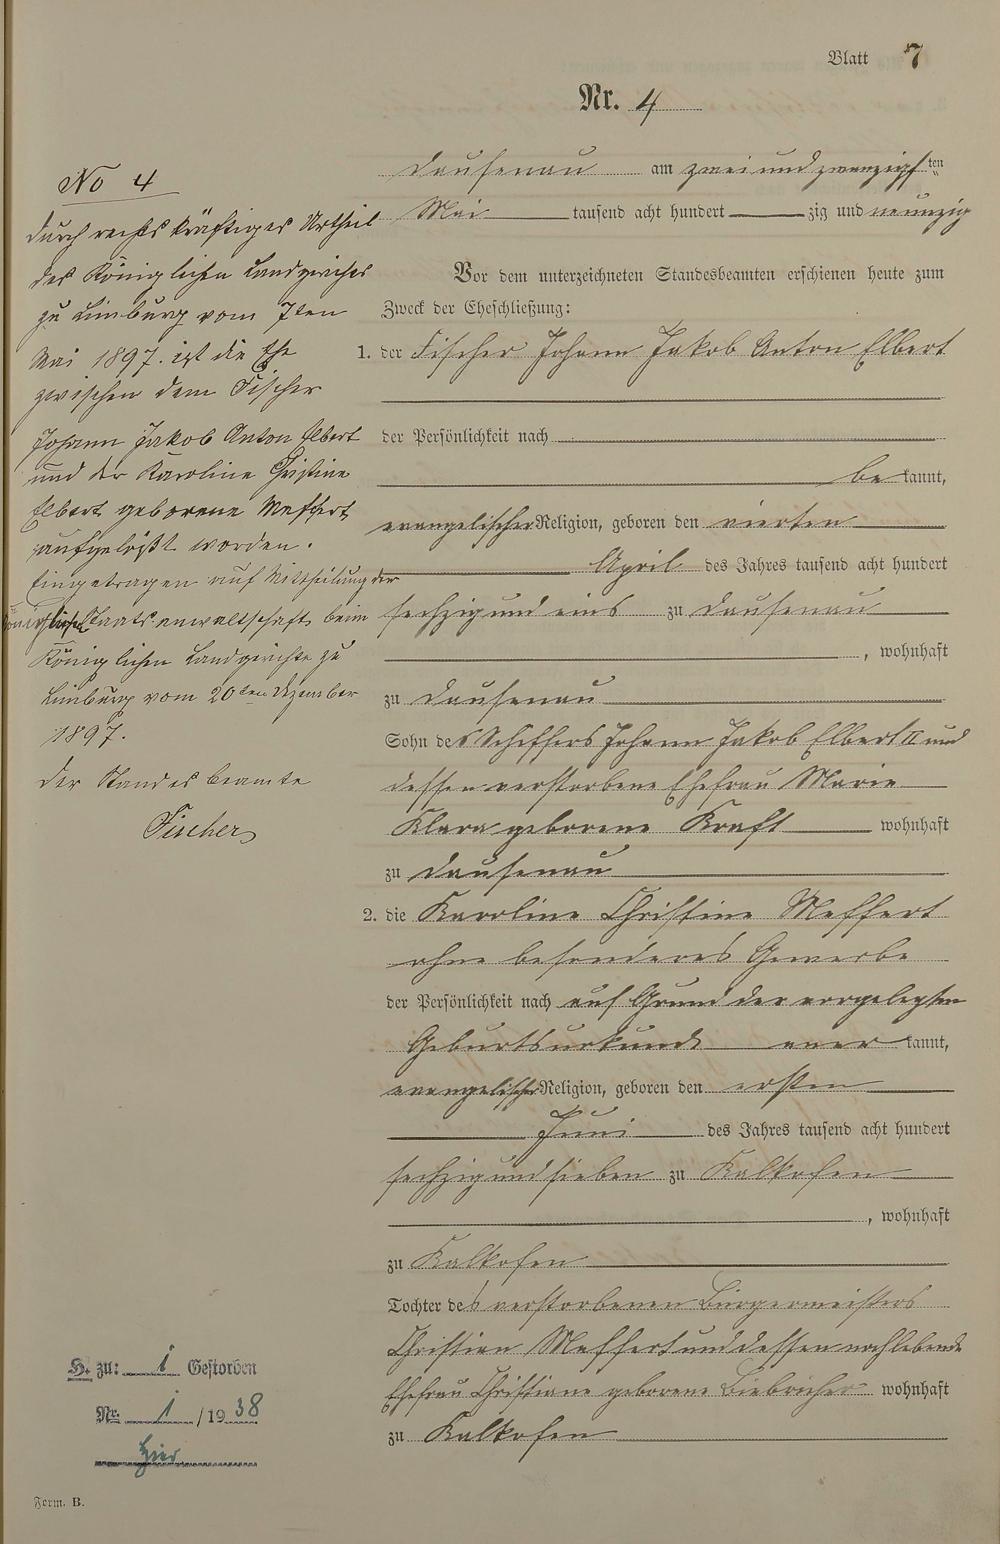 Blatt 7
Nr. 4
Dausenau am zwei und zwanzigsten
Mai tausend acht hundert zig und neunzig
Vor dem unterzeichneten Standesbeamten erschienen heute zum
Zweck der Eheschließung:
1. der Fischer Johann Jakob Anton Elbert
der Persönlichkeit nach
be kannt,
evangelischer Religion, geboren den vierten
April des Jahres tausend acht hundert
sechzig und eins zu Dausenau
, wohnhaft
zu Dausenau
Sohn des Schiffers Johann Jakob Elbert II und
dessen verstorbene Ehefrau Marie
Klara geborene Kraft wohnhaft
zu Dausenau
2. die Karoline Christine Meffert
ohne besonderes Gewerbe
der Persönlichkeit nach auf Grund der vorgelegten
Geburtsurkunde aner kannt,
evangelischer Religion, geboren den ersten
Juni des Jahres tausend acht hundert
sechzig und sieben zu Kalkofen
, wohnhaft
zu Kalkofen
Tochter des verstorbenen Bürgermeisters
Christian Meffert und dessen noch lebende
Ehefrau Christiane geborene Biebricher wohnhaft
zu Kalkofen
No 4
Durch rechtskräftiges Urtheil
des Königlichen Landgerichts
zu Limburg vom 7ten
Mai 1897. ist die Ehe
zwischen dem Fischer
Johann Jakob Anton Elbert
und der Karoline Christine
Elbert geborene Meffert
aufgelößt worden.
Eingetragen auf Mittheilung der
Königlichen Staatsanwaltschaft beim
Königlichen Landgerichte zu
Limburg vom 20ten Dezember
1897.
Der Standesbeamte
Fischer
H. zu: 1 Gestorben
Nr. 1 /1938
hier
Form. B.